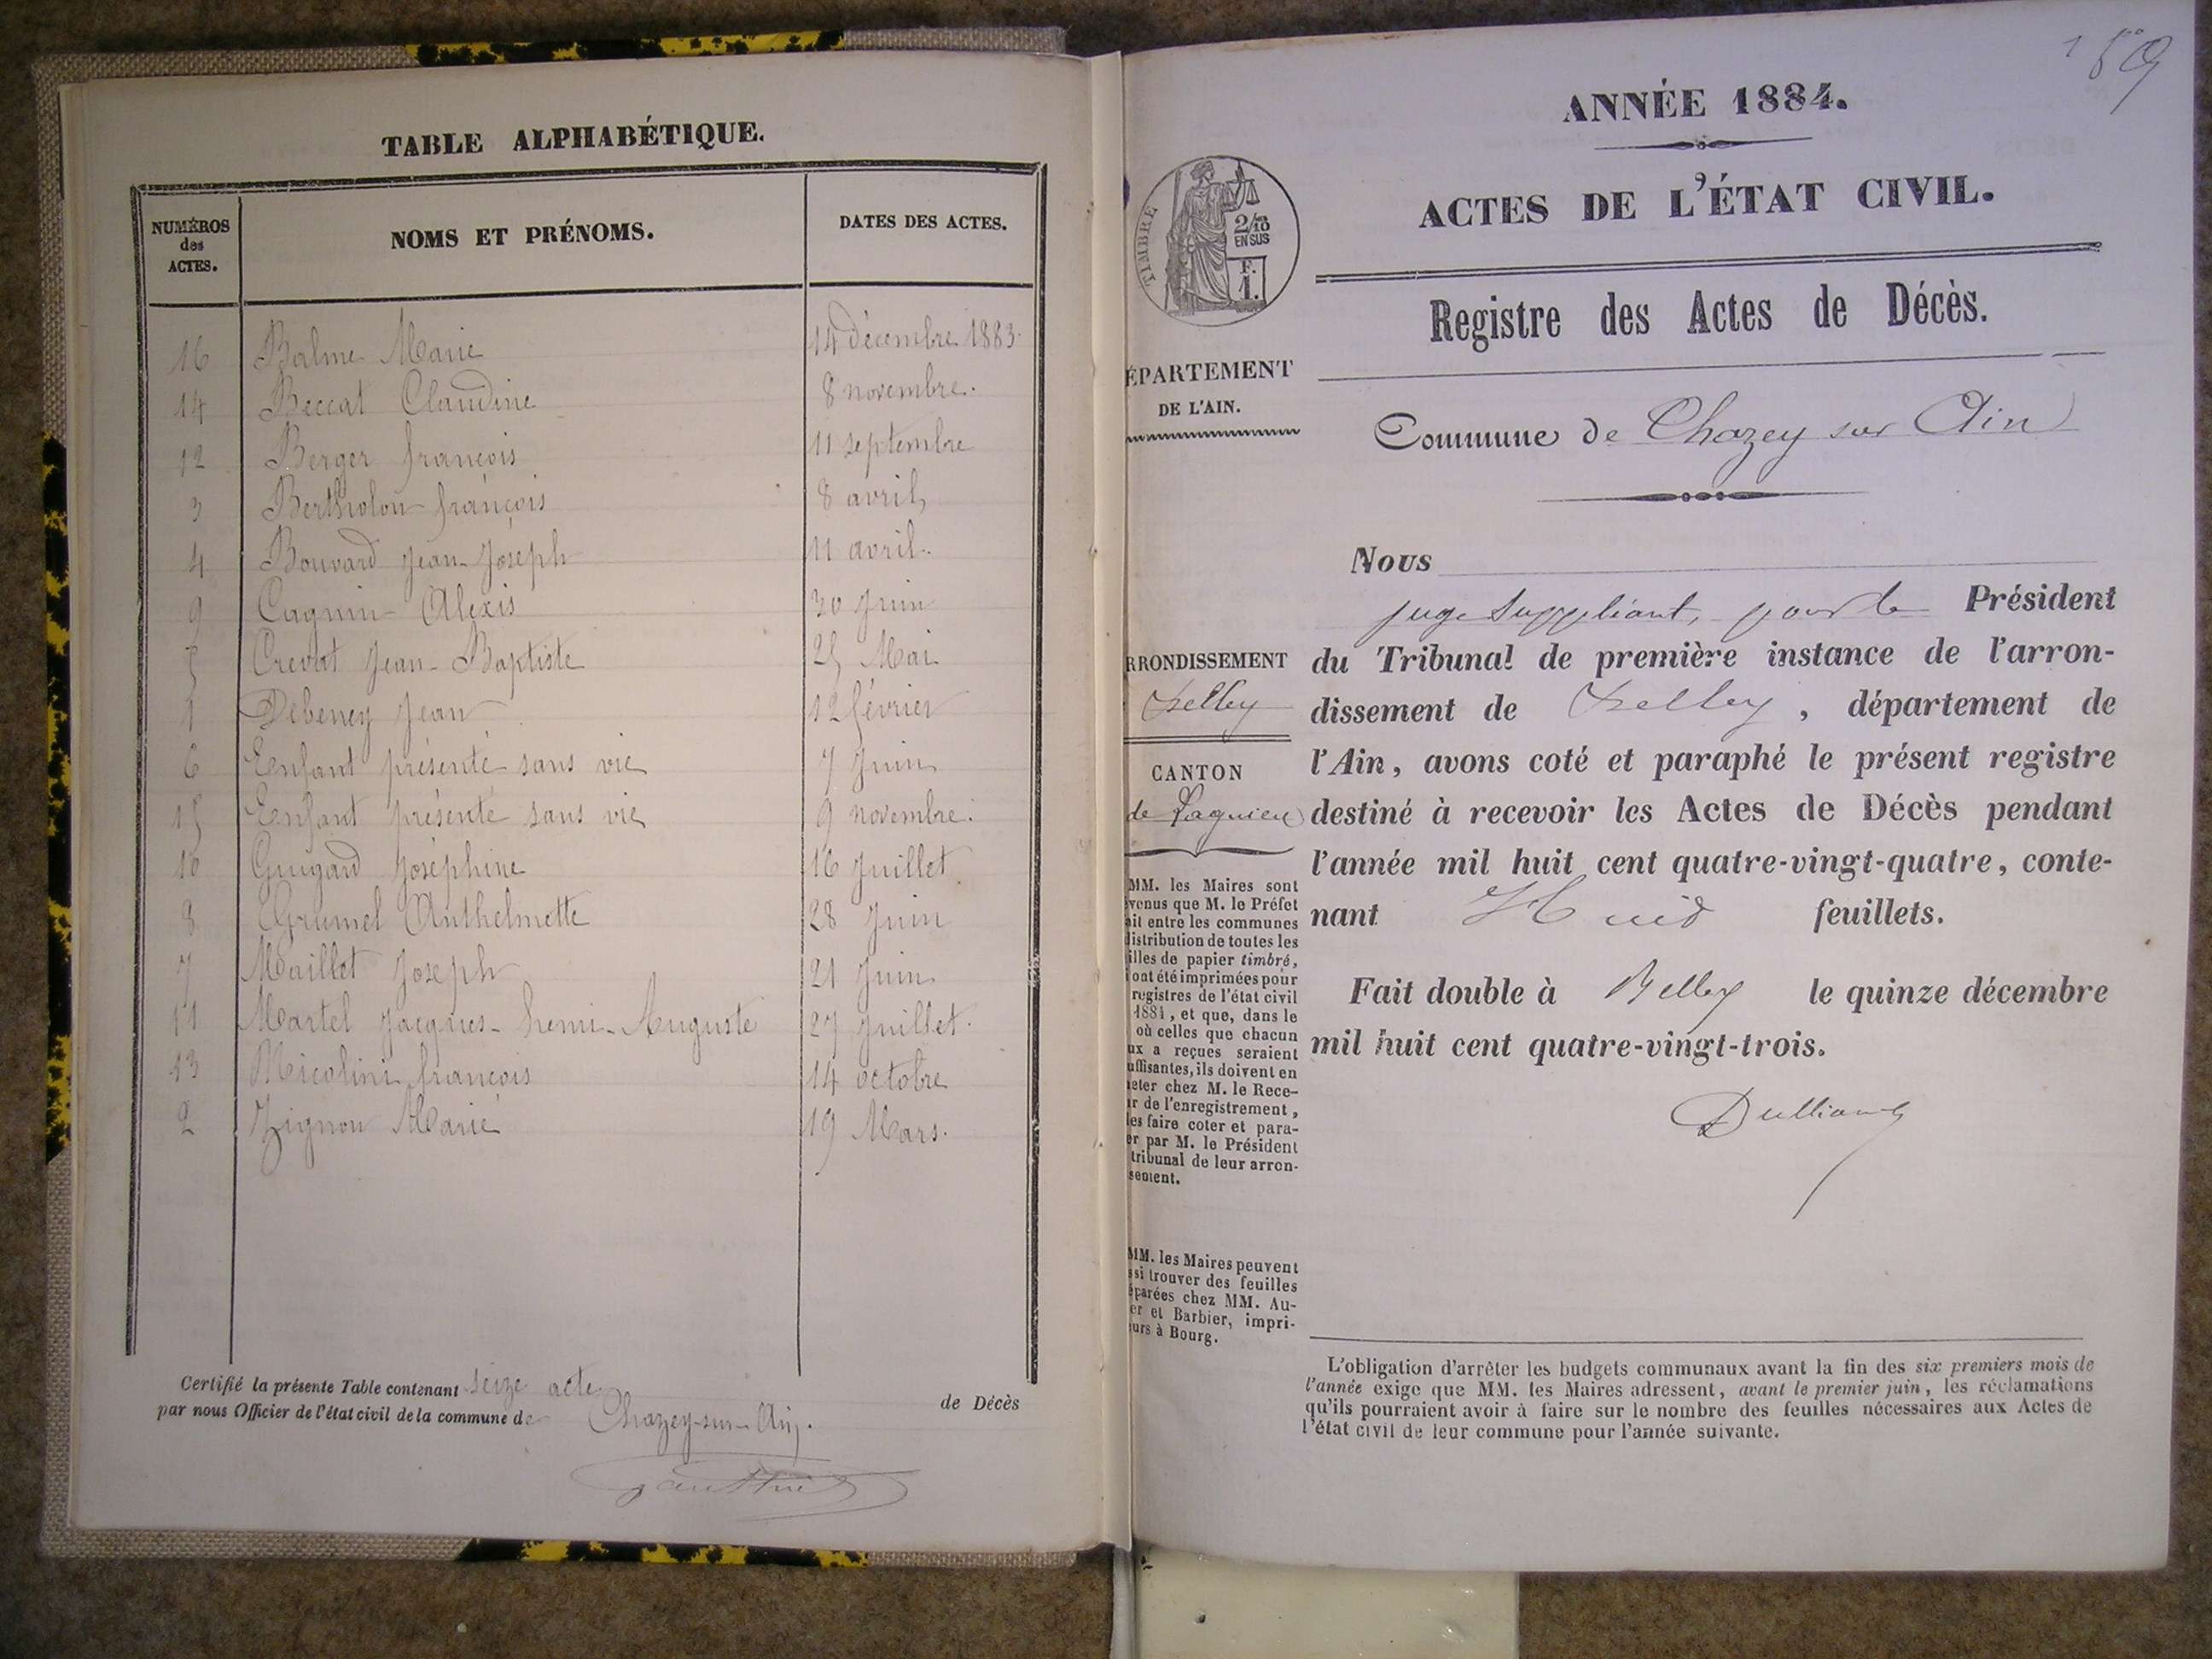 TABLE ALPHABÉTIQUE.
NUMÉROS des ACTES.
NOMS ET PRÉNOMS.
DATES DES ACTES.
16 Balme Marie 14 décembre 1883.
14 Beccat Claudine 8 novembre.
12 Berger françois 11 septembre
3 Bertholon françois 8 avril
4 Bouvard Jean Joseph 11 avril.
9 Cagnin Alexis 30 Juin
5 Crevat Jean-Baptiste 25 Mai
1 Debeney Jean 12 février
6 Enfant présenté sans vie 7 Juin
15 Enfant présenté sans vie 9 novembre.
10 Guigard Joséphine 16 Juillet
8 Grumel Anthelmette 28 Juin
7 Maillet Joseph 21 Juin
11 Martel Jacques-henri-Auguste 27 Juillet.
13 Nicolini françois 14 octobre
2 Zignon Marie 19 Mars.
Certifié la présente Table contenant seize acte de Décès
par nous Officier de l'état civil de la commune de Chazey-sur-Ain.
159
ANNÉE 1884.
ACTES DE L'ÉTAT CIVIL.
TIMBRE
2/10
EN SUS
F.
1.
Registre des Actes de Décès.
ÉPARTEMENT
DE L'AIN.
Commune de Chazey sur Ain
Nous
juge suppléant, pour le Président
RRONDISSEMENT
Belley
du Tribunal de première instance de l'arron-
dissement de Belley, département de
l'Ain, avons coté et paraphé le présent registre
CANTON
de Lagnieu
destiné à recevoir les Actes de Décès pendant
l'année mil huit cent quatre-vingt-quatre, conte-
nant Huit feuillets.
Fait double à Belley le quinze décembre
mil huit cent quatre-vingt-trois.
MM. les Maires sont
venus que M. le Préfet
ait entre les communes
distribution de toutes les
illes de papier timbré,
i ont été imprimées pour
registres de l'état civil
1884, et que, dans le
où celles que chacun
ux a reçues seraient
uffisantes, ils doivent en
heter chez M. le Rece-
ur de l'enregistrement,
les faire coter et para-
er par M. le Président
tribunal de leur arron-
sement.
MM. les Maires peuvent
ssi trouver des feuilles
éparées chez MM. Au-
er et Barbier, impri-
urs à Bourg.
L'obligation d'arrêter les budgets communaux avant la fin des six premiers mois de
l'année exige que MM. les Maires adressent, avant le premier juin, les réclamations
qu'ils pourraient avoir à faire sur le nombre des feuilles nécessaires aux Actes de
l'état civil de leur commune pour l'année suivante.